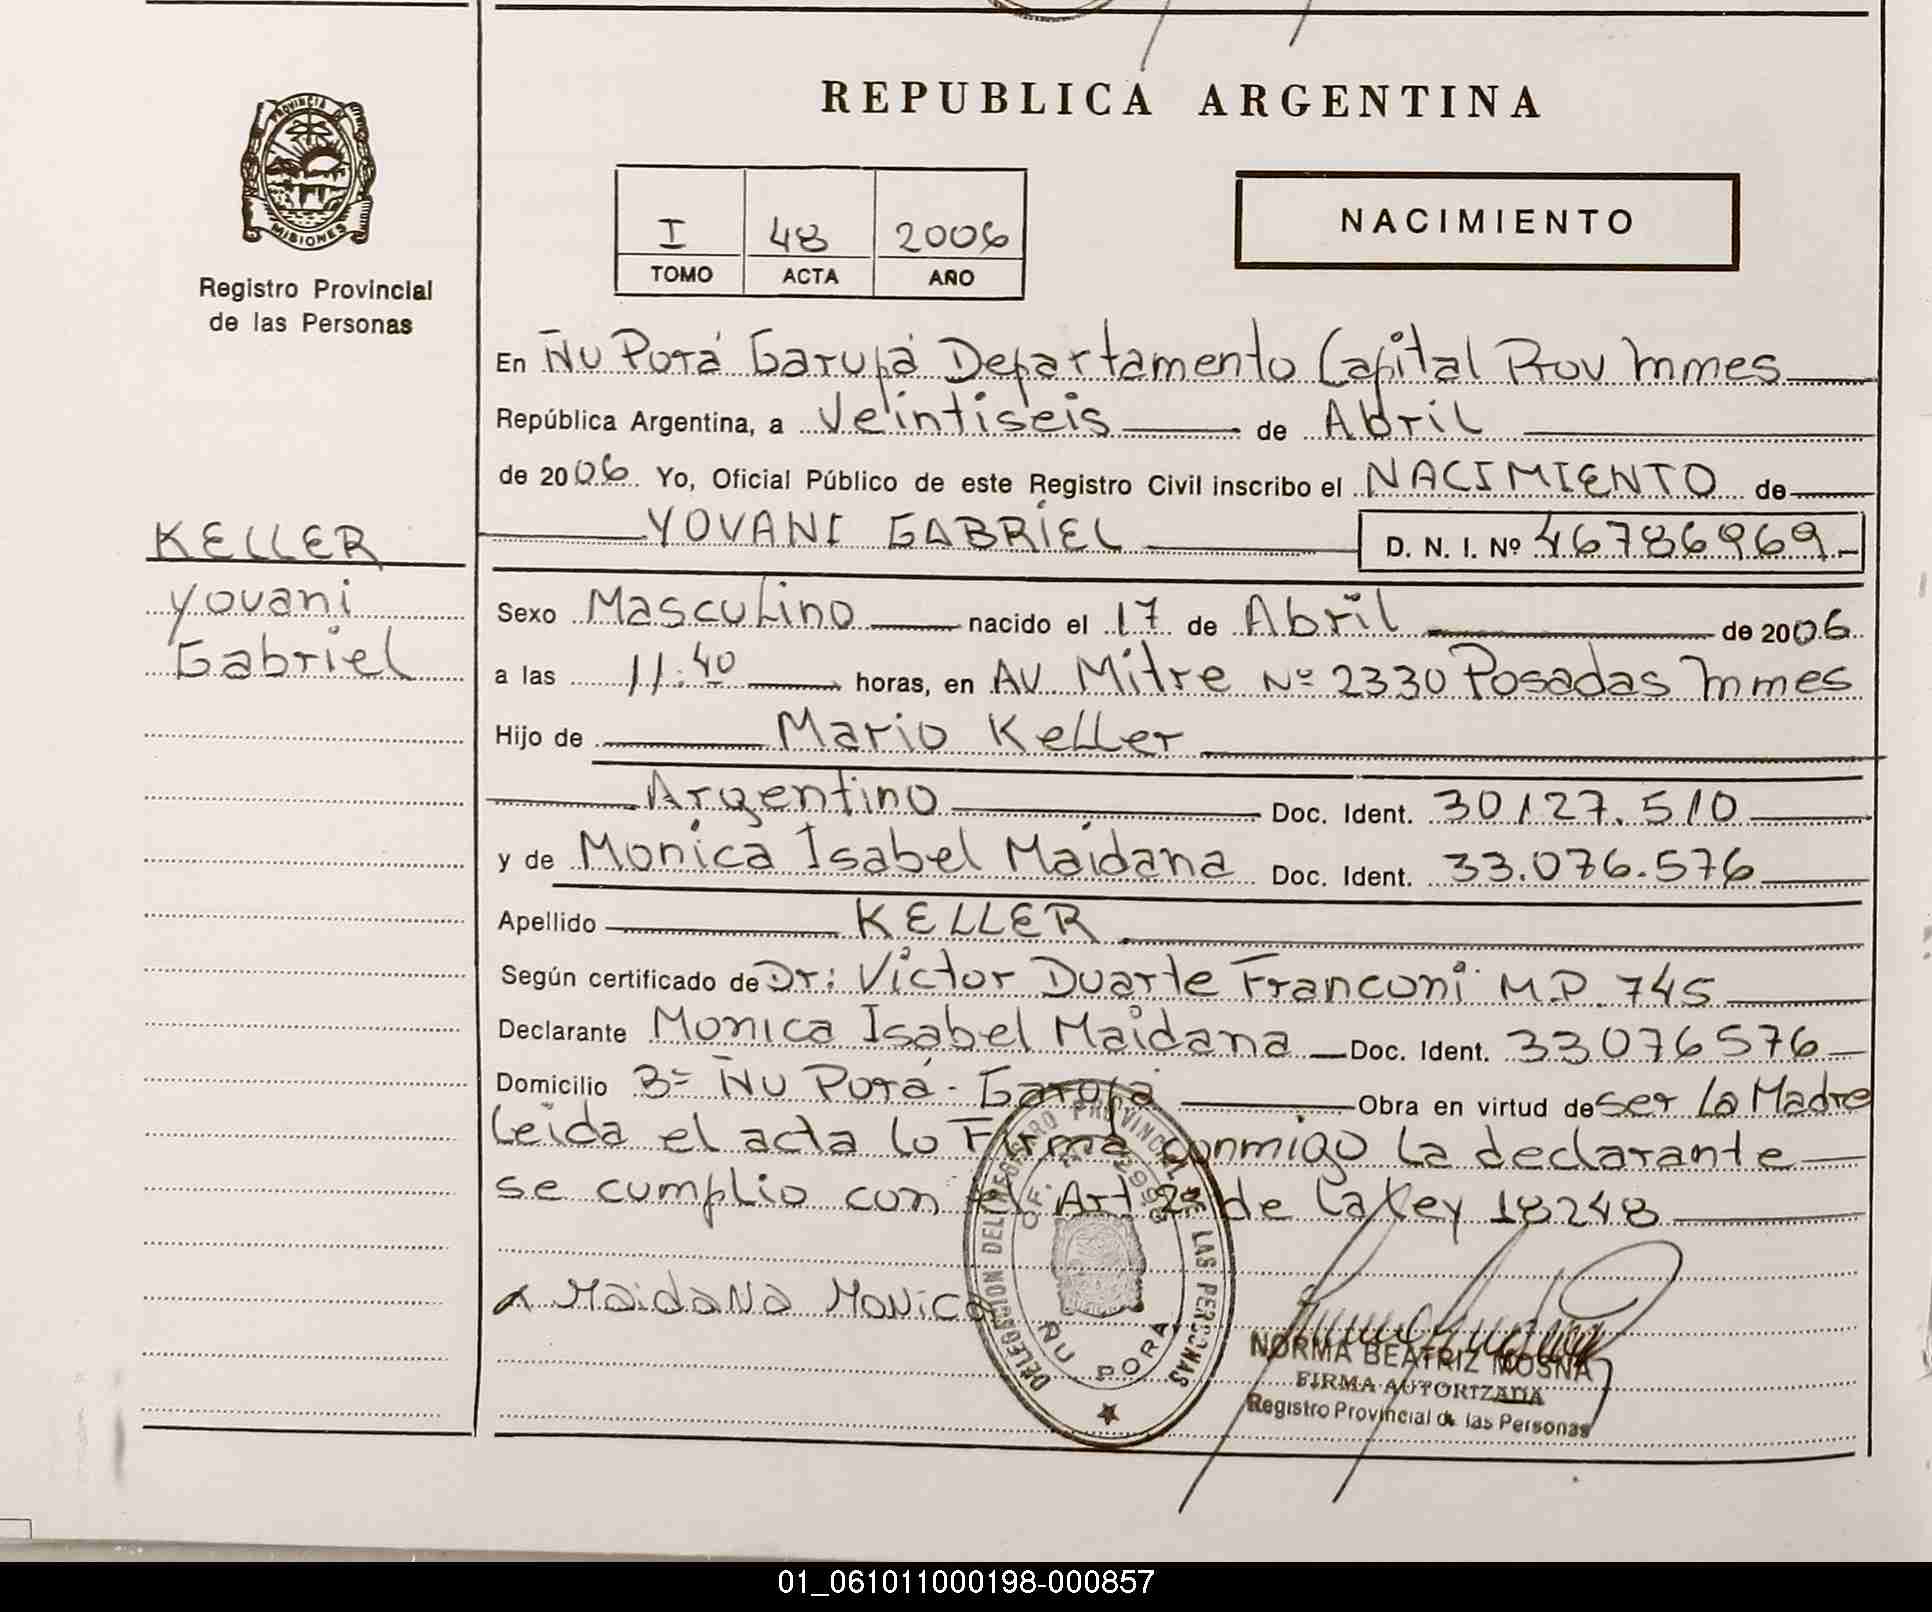 REPUBLICA ARGENTINA
PROVINCIA DE
MISIONES
Registro Provincial
de las Personas
I 48 2006
TOMO ACTA AÑO
NACIMIENTO
En Ñu Porá Garupá Departamento Capital Prov Mmes
República Argentina, a Veintiseis de Abril
de 2006 Yo, Oficial Público de este Registro Civil inscribo el NACIMIENTO de
YOVANI GABRIEL D. N. I. Nº 46786969
KELLER
Yovani
Gabriel
Sexo Masculino nacido el 17 de Abril de 2006
a las 11:40 horas, en AV. Mitre Nº 2330 Posadas Mmes
Hijo de Mario Keller
Argentino Doc. Ident. 30127.510
y de Monica Isabel Maidana Doc. Ident. 33.076.576
Apellido KELLER
Según certificado de Dr: Victor Duarte Franconi M.P. 745
Declarante Monica Isabel Maidana Doc. Ident. 33076576
Domicilio Bº Ñu Porá - Garupá Obra en virtud de ser la Madre
Leida el acta lo Firma conmigo la declarante
se cumplio con el Art 2º de la Ley 18248
x Maidana Monica
DELEGACION DEL REGISTRO PROVINCIAL DE LAS PERSONAS
ÑU PORA
NORMA BEATRIZ MOSNA
FIRMA AUTORIZADA
Registro Provincial de las Personas
01_061011000198-000857